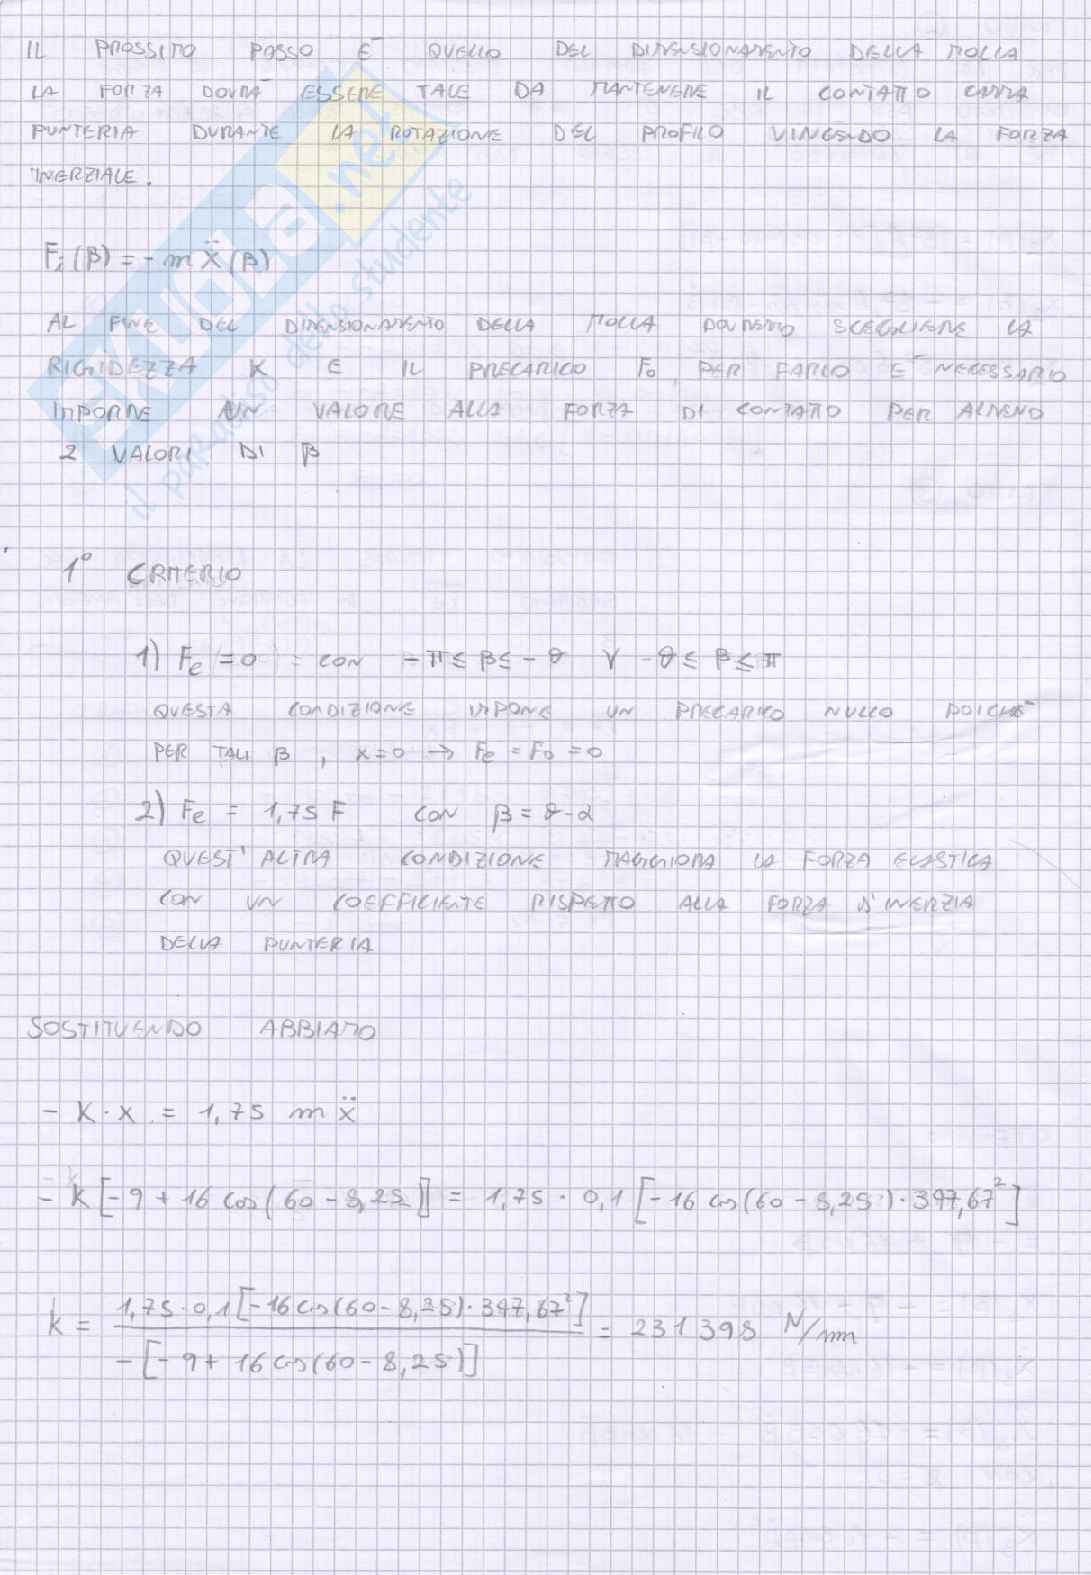 IL PROSSIMO PASSO È QUELLO DEL DIMENSIONAMENTO DELLA MOLLA
LA FORZA DOVRÀ ESSERE TALE DA MANTENERE IL CONTATTO CAMMA
PUNTERIA DURANTE LA ROTAZIONE DEL PROFILO VINCENDO LA FORZA
INERZIALE.
Fi(β) = - m ẍ(β)
AL FINE DEL DIMENSIONAMENTO DELLA MOLLA DOVREMO SCEGLIERE LA
RIGIDEZZA K E IL PRECARICO F₀, PER FARLO È NECESSARIO
IMPORRE UN VALORE ALLA FORZA DI CONTATTO PER ALMENO
2 VALORI DI β
1° CRITERIO
1) Fe = 0 con -π ≤ β ≤ -θ ∨ -θ ≤ β ≤ π
QUESTA CONDIZIONE IMPONE UN PRECARICO NULLO POICHÉ
PER TALI β, x=0 → Fe = F₀ = 0
2) Fe = 1,75 F CON β = θ-α
QUEST'ALTRA CONDIZIONE MAGGIORA LA FORZA ELASTICA
CON UN COEFFICIENTE RISPETTO ALLA FORZA D'INERZIA
DELLA PUNTERIA
SOSTITUENDO ABBIAMO
- K·x = 1,75 m ẍ
- k[-9 + 16 cos(60 - 8,25)] = 1,75 · 0,1 [-16 cos(60 - 8,25)·397,67²]
k = 1,75·0,1[-16cos(60-8,25)·397,67²] / -[-9+16cos(60-8,25)] = 231398 N/mm
SKUOLA.net
il paradiso dello studente